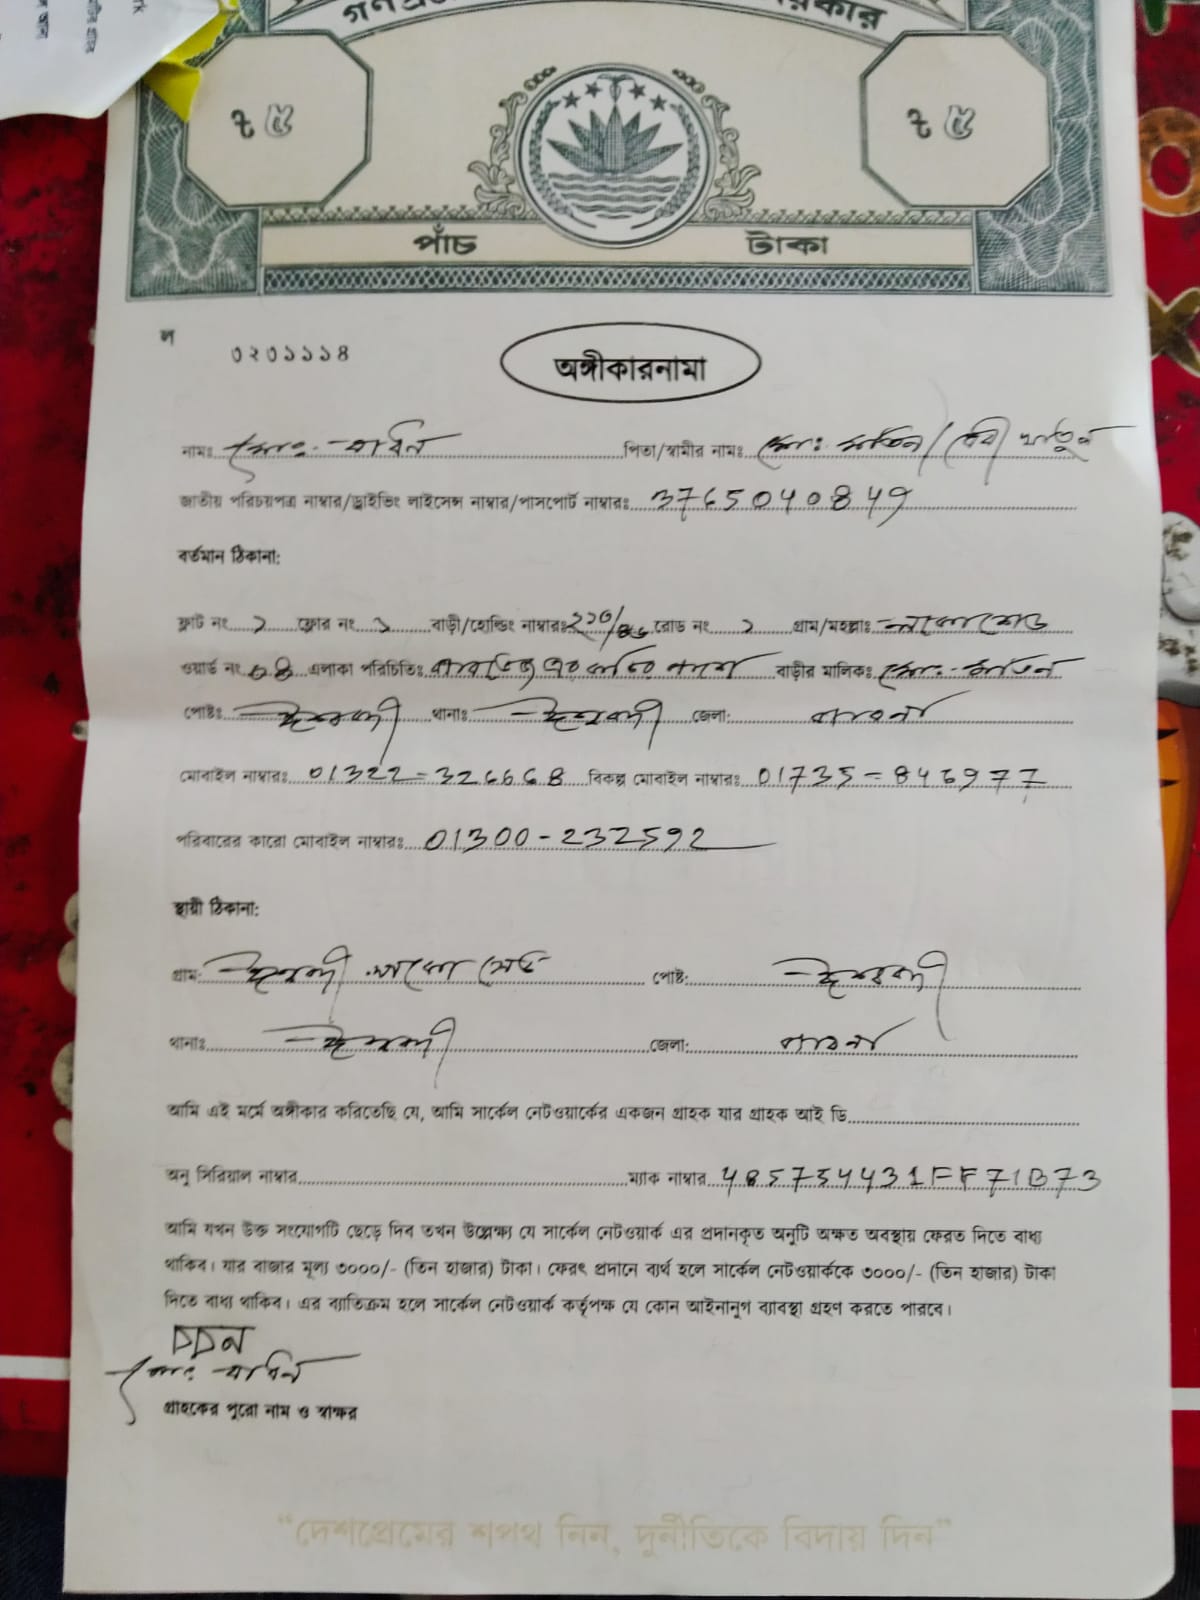 ৳ ৫
৳ ৫
পাঁচ টাকা
ল ৩২৩১১১৪
অঙ্গীকারনামা
নামঃ মোঃ পিতা/স্বামীর নামঃ মোঃ
জাতীয় পরিচয়পত্র নাম্বার/ড্রাইভিং লাইসেন্স নাম্বার/পাসপোর্ট নাম্বারঃ 3765040849
বর্তমান ঠিকানা:
ফ্লাট নং ১ ফ্লোর নং ১ বাড়ী/হোল্ডিং নাম্বারঃ রোড নং ১ গ্রাম/মহল্লাঃ লোকোশেড
ওয়ার্ড নং 04 এলাকা পরিচিতিঃ বাড়ীর মালিকঃ মোঃ
পোষ্টঃ ঈশ্বরদী থানাঃ ঈশ্বরদী জেলা: পাবনা
মোবাইল নাম্বারঃ 01322-326668 বিকল্প মোবাইল নাম্বারঃ 01735-846977
পরিবারের কারো মোবাইল নাম্বারঃ 01300-232592
স্থায়ী ঠিকানা:
গ্রাম: ঈশ্বরদী লোকো শেড পোষ্ট: ঈশ্বরদী
থানাঃ ঈশ্বরদী জেলা: পাবনা
আমি এই মর্মে অঙ্গীকার করিতেছি যে, আমি সার্কেল নেটওয়ার্কের একজন গ্রাহক যার গ্রাহক আই ডি
অনু সিরিয়াল নাম্বার ম্যাক নাম্বার 485754431FF71B73
আমি যখন উক্ত সংযোগটি ছেড়ে দিব তখন উল্লেক্ষ্য যে সার্কেল নেটওয়ার্ক এর প্রদানকৃত অনুটি অক্ষত অবস্থায় ফেরত দিতে বাধ্য
থাকিব। যার বাজার মূল্য ৩০০০/- (তিন হাজার) টাকা। ফেরৎ প্রদানে ব্যর্থ হলে সার্কেল নেটওয়ার্ককে ৩০০০/- (তিন হাজার) টাকা
দিতে বাধ্য থাকিব। এর ব্যাতিক্রম হলে সার্কেল নেটওয়ার্ক কর্তৃপক্ষ যে কোন আইনানুগ ব্যাবস্থা গ্রহণ করতে পারবে।
মোঃ
গ্রাহকের পুরো নাম ও স্বাক্ষর
“দেশপ্রেমের শপথ নিন, দুর্নীতিকে বিদায় দিন”